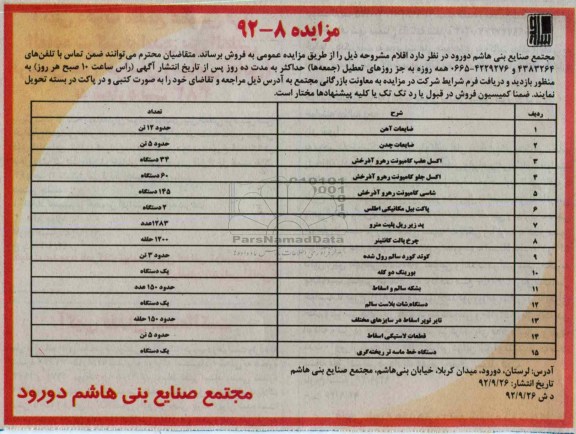 مزایده ۸-۹۲
مجتمع صنایع بنی هاشم دورود در نظر دارد اقلام مشروحه ذیل را از طریق مزایده عمومی به فروش برساند. متقاضیان محترم می‌توانند ضمن تماس با تلفن‌های
۴۳۸۳۲۶۴ و ۴۲۲۹۲۷۶-۰۶۶۵ همه روزه به جز روزهای تعطیل (جمعه‌ها) حداکثر به مدت ده روز پس از تاریخ انتشار آگهی (راس ساعت ۱۰ صبح هر روز) به
منظور بازدید و دریافت فرم شرایط شرکت در مزایده به معاونت بازرگانی مجتمع به آدرس ذیل مراجعه و تقاضای خود را به صورت کتبی و در پاکت در بسته تحویل
نمایند. ضمنا کمیسیون فروش در قبول یا رد تک تک یا کلیه پیشنهادها مختار است.
ردیف شرح تعداد
۱ ضایعات آهن حدود ۱۲ تن
۲ ضایعات چدن حدود ۵ تن
۳ اکسل عقب کامیونت رهرو آذرخش ۳۳ دستگاه
۴ اکسل جلو کامیونت رهرو آذرخش ۶۰ دستگاه
۵ شاسی کامیونت رهرو آذرخش ۱۴۵ دستگاه
۶ پاکت بیل مکانیکی اطلس ۲ دستگاه
۷ پد زیر ریل پلیت مترو ۱۲۸۳عدد
۸ چرخ پالت کانتینر ۱۲۰۰ حلقه
۹ کوئد کورد سالم رول شده حدود ۳ تن
۱۰ بورینگ دو کله یک دستگاه
۱۱ بشکه سالم و اسقاط حدود ۱۵۰ عدد
۱۲ دستگاه‌شات بلاست سالم یک دستگاه
۱۳ تایر تویر اسقاط در سایزهای مختلف حدود ۱۵۰ حلقه
۱۴ قطعات لاستیکی اسقاط حدود ۵ تن
۱۵ دستگاه خط ماسه تر ریخته‌گری یک دستگاه
ParsNamadData
آدرس: لرستان، دورود، میدان کربلا، خیابان بنی‌هاشم، مجتمع صنایع بنی هاشم
تاریخ انتشار: ۹۲/۹/۲۶
د ش ۹۲/۹/۲۶
مجتمع صنایع بنی هاشم دورود